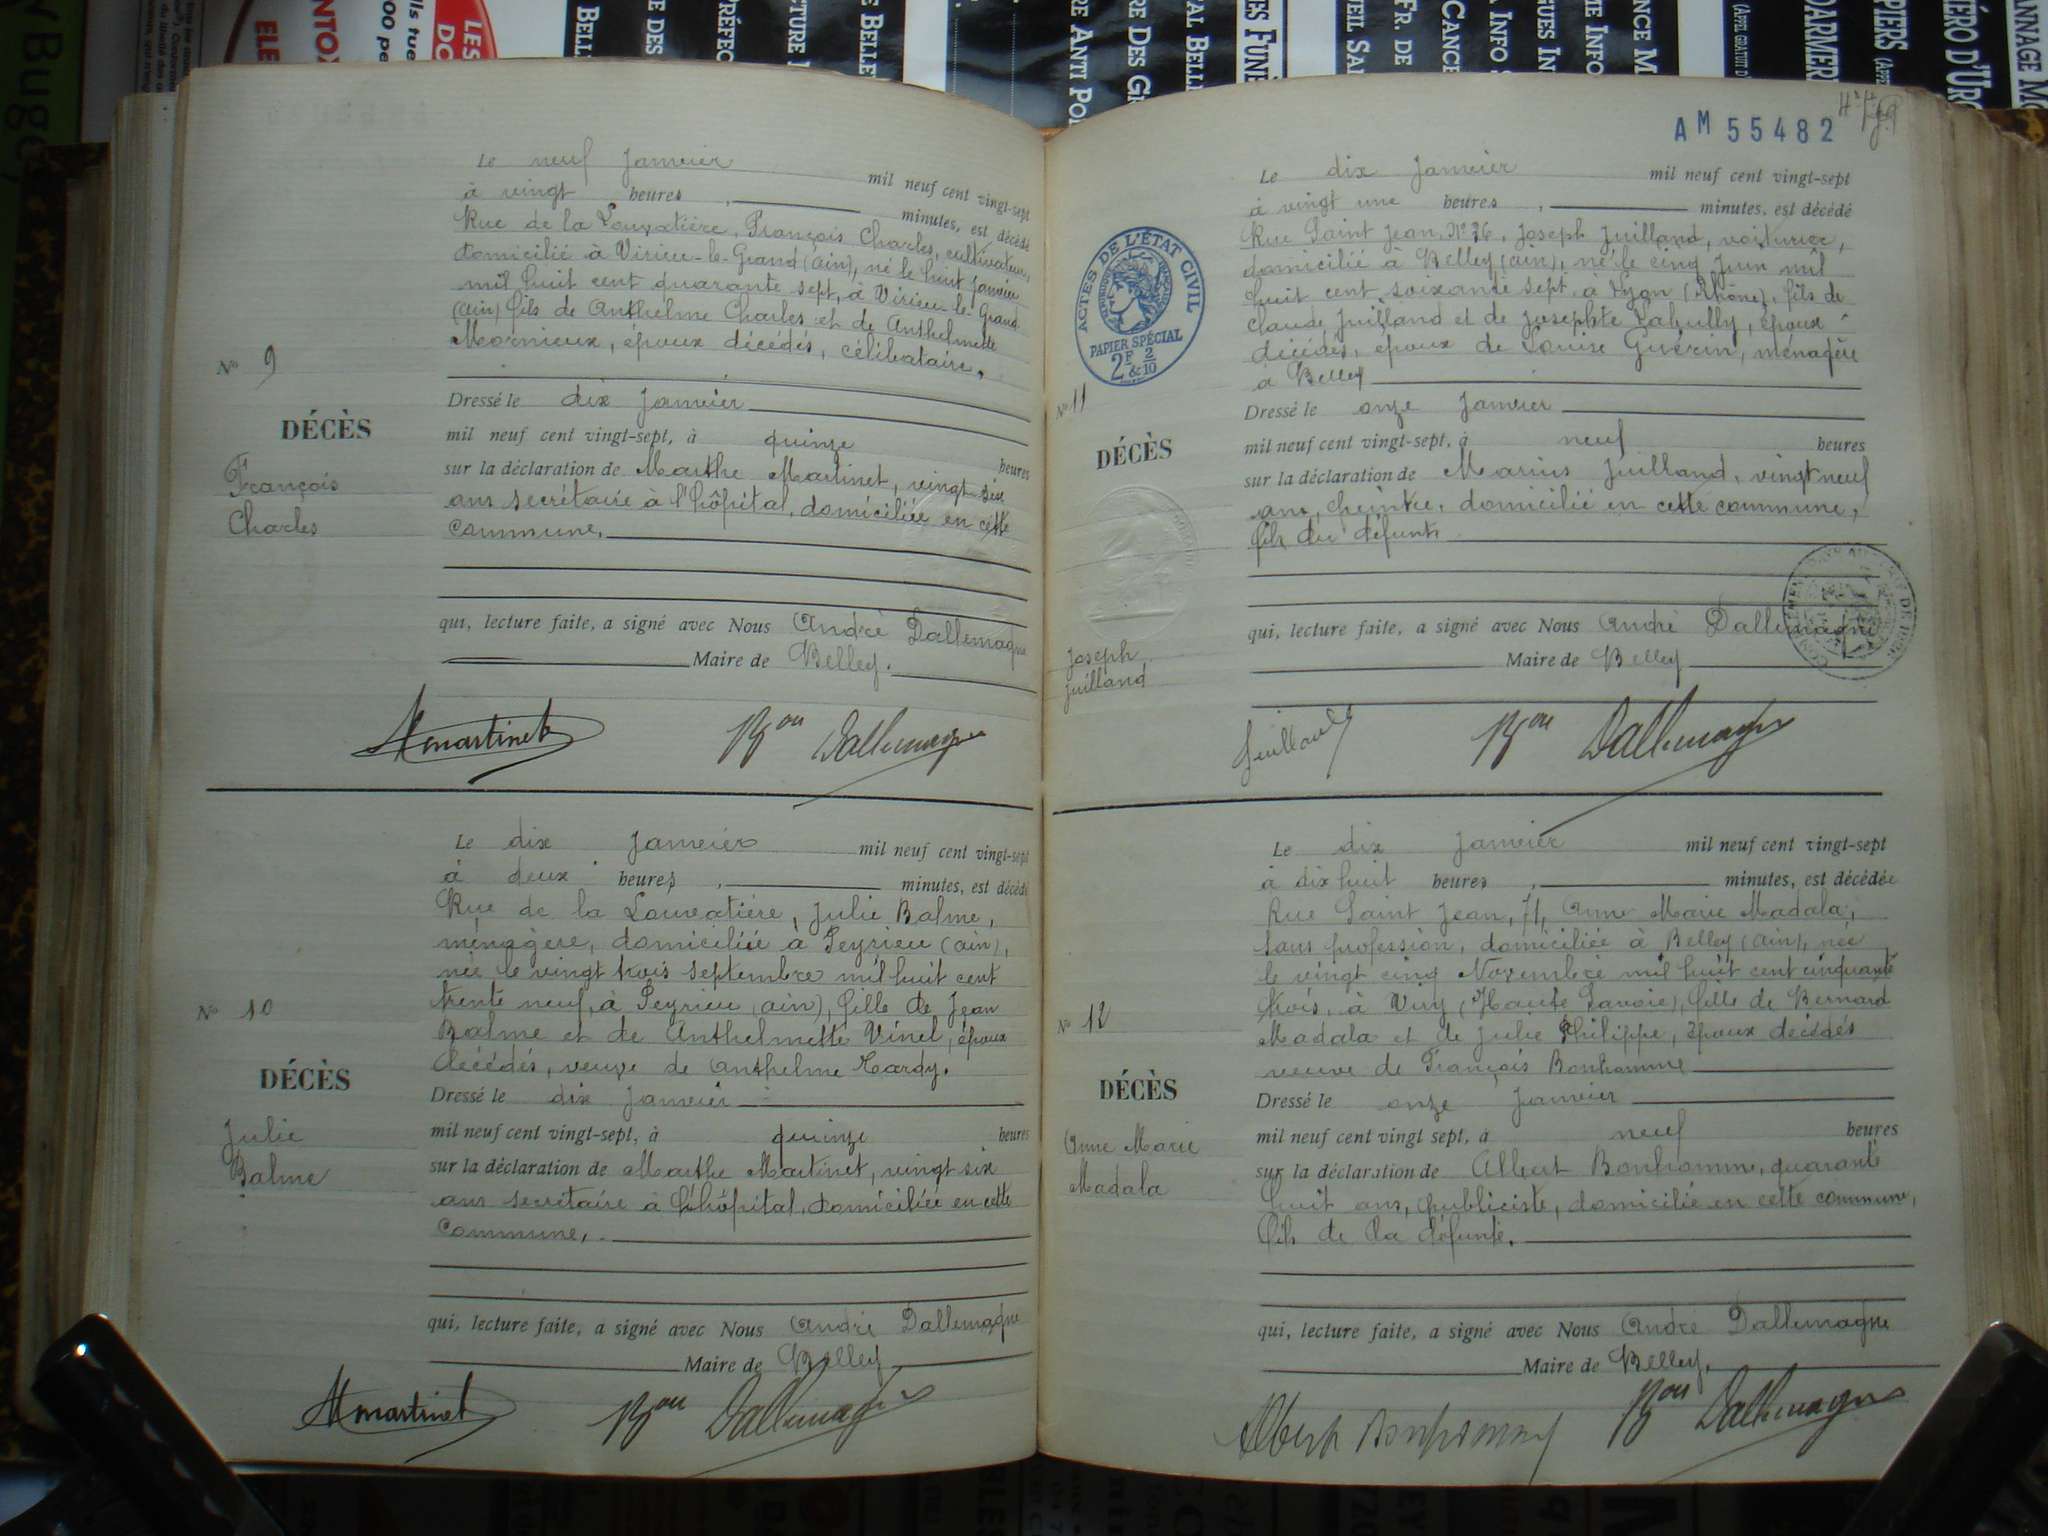 Le neuf Janvier mil neuf cent vingt-sept
à vingt heures, minutes, est décédé
Rue de la Louvatière, François Charles, cultivateur,
domicilié à Virieu-le-Grand (ain), né le huit janvier
mil huit cent quarante sept, à Virieu-le-Grand
(ain) fils de Anthelme Charles et de Anthelmette
Mornieux, époux décédés, célibataire,
N° 9
DÉCÈS
François
Charles
Dressé le dix Janvier
mil neuf cent vingt-sept, à quinze heures
sur la déclaration de Marthe Martinet, vingt six
ans secrétaire à l'hôpital, domiciliée en cette
commune,
qui, lecture faite, a signé avec Nous André Dallemagne
Maire de Belley.
Martinet Bon Dallemagne
Le dix Janvier mil neuf cent vingt-sept
à deux heures, minutes, est décédé
Rue de la Louvatière, Julie Balme,
ménagère, domiciliée à Peyrieu (ain),
née le vingt trois septembre mil huit cent
trente neuf, à Peyrieu (ain), fille de Jean
Balme et de Anthelmette Vinel, époux
décédés, veuve de Anthelme Tardy.
N° 10
DÉCÈS
Julie
Balme
Dressé le dix Janvier
mil neuf cent vingt-sept, à quinze heures
sur la déclaration de Marthe Martinet, vingt six
ans secrétaire à l'hôpital, domiciliée en cette
commune,
qui, lecture faite, a signé avec Nous André Dallemagne
Maire de Belley
Martinet Bon Dallemagne
AM 55482
Le dix Janvier mil neuf cent vingt-sept
à vingt une heures, minutes, est décédé
Rue Saint Jean, N° 36, Joseph Juilland, voiturier,
domicilié à Belley (ain), né le cinq Juin mil
huit cent soixante sept, à Lyon (Rhône), fils de
Claude Juilland et de Josephte Lahully, époux
décédés, époux de Louise Guérin, ménagère
à Belley
ACTES DE L'ÉTAT CIVIL
RÉPUBLIQUE FRANÇAISE
PAPIER SPÉCIAL
2F & 2/10
N° 11
DÉCÈS
Joseph
Juilland
Dressé le onze Janvier
mil neuf cent vingt-sept, à neuf heures
sur la déclaration de Marius Juilland, vingt neuf
ans, peintre, domicilié en cette commune,
fils du défunt
qui, lecture faite, a signé avec Nous André Dallemagne
Maire de Belley
Juilland Bon Dallemagne
Le dix Janvier mil neuf cent vingt-sept
à dix huit heures, minutes, est décédée
Rue Saint Jean, 71, Anne Marie Madala,
sans profession, domiciliée à Belley (ain), née
le vingt cinq Novembre mil huit cent cinquante
trois, à Viry (Haute Savoie), fille de Bernard
Madala et de Julie Philippe, époux décédés
veuve de François Bonhomme
N° 12
DÉCÈS
Anne Marie
Madala
Dressé le onze Janvier
mil neuf cent vingt sept, à neuf heures
sur la déclaration de Albert Bonhomme, quarante
huit ans, publiciste, domicilié en cette commune,
fils de la défunte,
qui, lecture faite, a signé avec Nous André Dallemagne
Maire de Belley.
Albert Bonhomme Bon Dallemagne